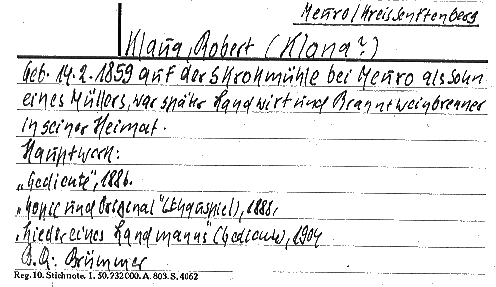 Meuro/Kreis Senftenberg
Klaua, Robert (Klana?)
Geb. 14.2.1859 auf der Strohmühle bei Meuro als Sohn
eines Müllers, war später Landwirt und Branntweinbrenner
in seiner Heimat.
Hauptwerk:
„Gedichte", 1886.
„Copie und Original" (Lustspiel), 1888.
„Lieder eines Landmanns" (Gedichte), 1904
B.Q.: Brümmer
Reg. 10. Stichnote. 1. 50. 732 000. A. 803. S. 4062